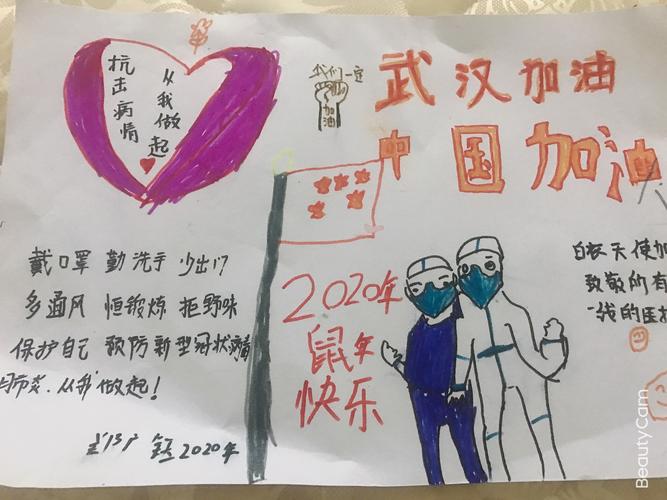 抗击病情
从我做起
我们一定
加油
武汉加油
中国加油
戴口罩 勤洗手 少出门
多通风 恒锻炼 拒野味
保护自己 预防新型冠状病毒
肺炎.从我做起!
2020年
2020年
鼠年
快乐
白衣天使加
致敬所有
一线的医护
BeautyCam